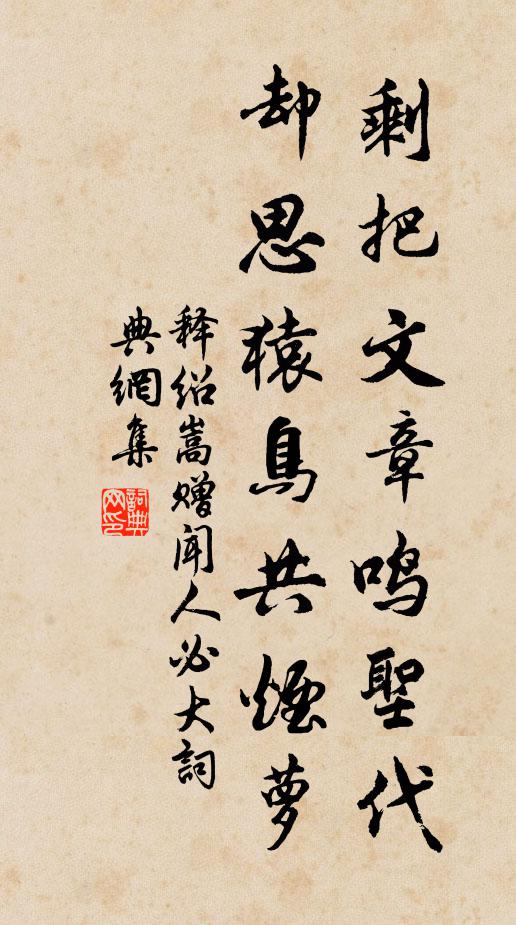 剩把文章鳴聖代
却思猿鳥共煙夢
释绍嵩赠闻人必大詞
典網集
詞典
网印